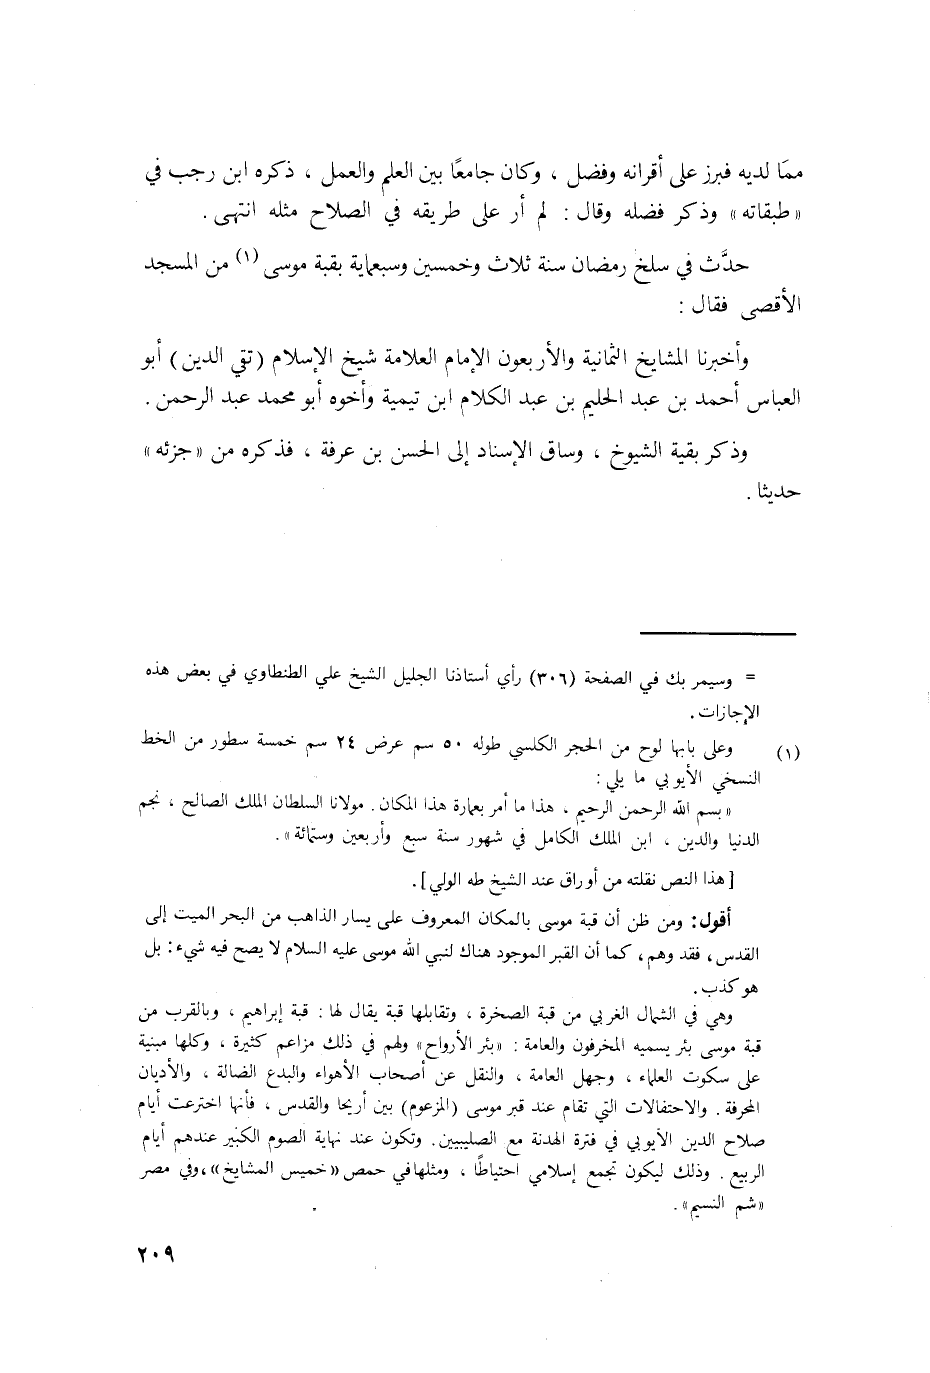 ممّا لديه فبرز على أقرانه وفضل ، وكان جامعًا بين العلم والعمل ، ذكره ابن رجب في
«طبقاته» وذكر فضله وقال : لم أر على طريقه في الصلاح مثله انتهى .
حدَّث في سلخ رمضان سنة ثلاث وخمسين وسبعماية بقبة موسى (١) من المسجد
الأقصى فقال :
وأخبرنا المشايخ الثمانية والأربعون الإمام العلامة شيخ الإسلام (تقي الدين) أبو
العباس أحمد بن عبد الحليم بن عبد الكلام ابن تيمية وأخوه أبو محمد عبد الرحمن .
وذكر بقية الشيوخ ، وساق الإسناد إلى الحسن بن عرفة ، فذكره من «جزئه»
حديثا .
= وسيمر بك في الصفحة (٣٠٦) رأي أستاذنا الجليل الشيخ علي الطنطاوي في بعض هذه
الإجازات .
(١) وعلى بابها لوح من الحجر الكلسي طوله ٥٠ سم عرض ٢٤ سم خمسة سطور من الخط
النسخي الأيوبي ما يلي :
«بسم الله الرحمن الرحيم ، هذا ما أمر بعمارة هذا المكان . مولانا السلطان الملك الصالح ، نجم
الدنيا والدين ، ابن الملك الكامل في شهور سنة سبع وأربعين وستمائة» .
[هذا النص نقلته من أوراق عند الشيخ طه الولي] .
أقول : ومن ظن أن قبة موسى بالمكان المعروف على يسار الذاهب من البحر الميت إلى
القدس ، فقد وهم ، كما أن القبر الموجود هناك لنبي الله موسى عليه السلام لا يصح فيه شيء : بل
هو كذب .
وهي في الشمال الغربي من قبة الصخرة ، وتقابلها قبة يقال لها : قبة إبراهيم ، وبالقرب من
قبة موسى بئر يسميه المخرفون والعامة : «بئر الأرواح» ولهم في ذلك مزاعم كثيرة ، وكلها مبنية
على سكوت العلماء ، وجهل العامة ، والنقل عن أصحاب الأهواء والبدع الضالة ، والأديان
المحرفة . والاحتفالات التي تقام عند قبر موسى (المزعوم) بين أريحا والقدس ، فأنها اخترعت أيام
صلاح الدين الأيوبي في فترة الهدنة مع الصليبيين . وتكون عند نهاية الصوم الكبير عندهم أيام
الربيع . وذلك ليكون تجمع إسلامي احتياطًا ، ومثلها في حمص «خميس المشايخ» ، وفي مصر
«شم النسيم» .
٢٠٩